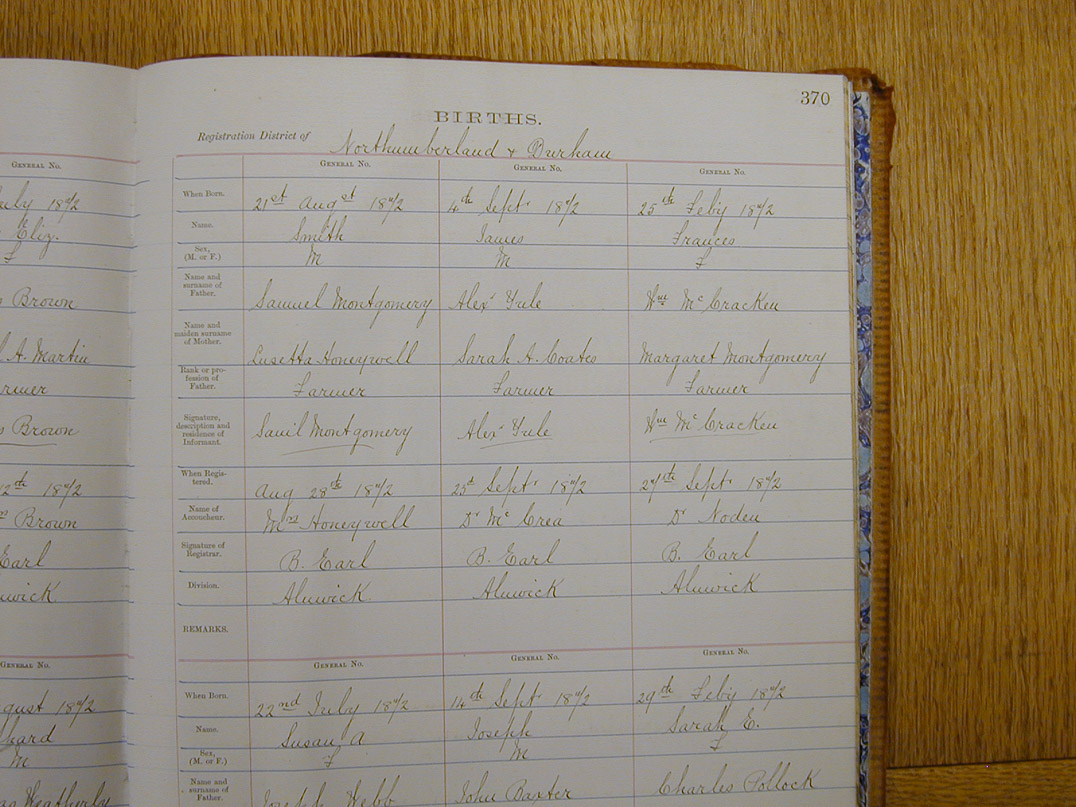 370
BIRTHS.
Registration District of Northumberland & Durham
GENERAL No. GENERAL No. GENERAL No. GENERAL No.
July 1872 When Born. 21st Augst 1872 4th Sept. 1872 25th Feby 1872
Eliz. Name. Smith James Frances
F Sex, (M. or F.) M M F
Brown Name and surname of Father. Samuel Montgomery Alexr Yule Wm McCracken
A. Martin Name and maiden surname of Mother. Lusetta Honeywell Sarah A. Coates Margaret Montgomery
Farmer Rank or profession of Father. Farmer Farmer Farmer
Brown Signature, description and residence of Informant. Saml Montgomery Alexr Yule Wm McCracken
1872 When Registered. Aug 28th 1872 25th Sept. 1872 27th Sept. 1872
Brown Name of Accoucheur. Mrs Honeywell Dr McCrea Dr Noden
Earl Signature of Registrar. B. Earl B. Earl B. Earl
Alnwick Division. Alnwick Alnwick Alnwick
REMARKS.
GENERAL No. GENERAL No. GENERAL No. GENERAL No.
August 1872 When Born. 22nd July 1872 14th Sept. 1872 29th Feby 1872
Name. Susan A Joseph Sarah E.
M Sex, (M. or F.) F M F
Weatherly Name and surname of Father. Joseph Webb John Baxter Charles Pollock